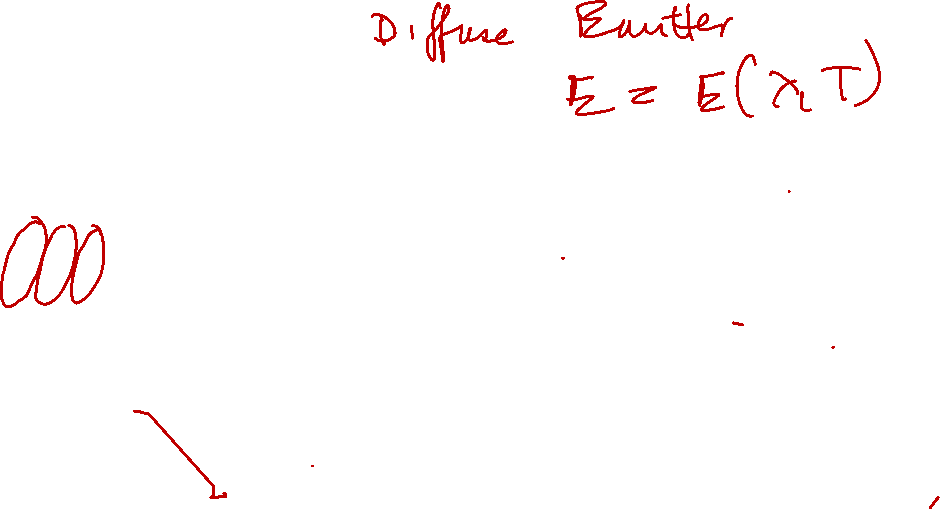 Diffuse Emitter
E = E(λ, T)
000